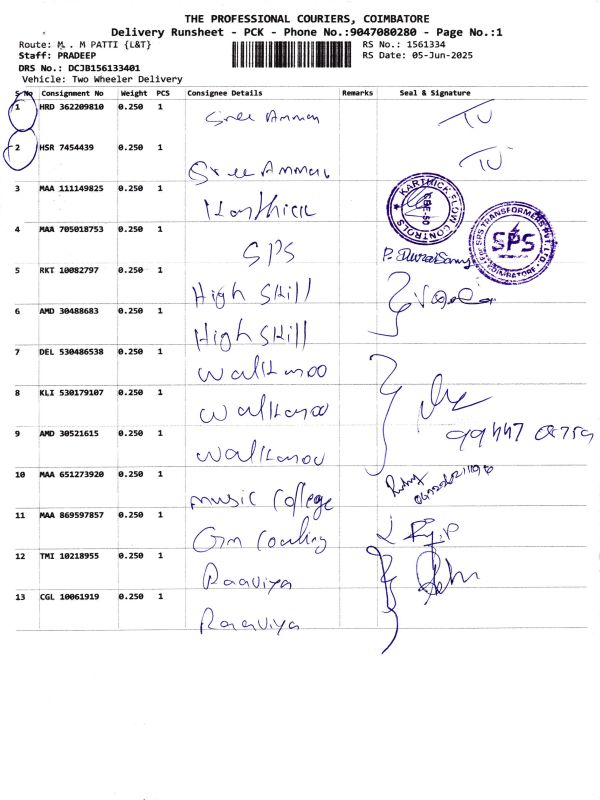 THE PROFESSIONAL COURIERS, COIMBATORE
Delivery Runsheet - PCK - Phone No.:9047080280 - Page No.:1
Route: M . M PATTI {L&T} RS No.: 1561334
Staff: PRADEEP RS Date: 05-Jun-2025
DRS No.: DCJB156133401
Vehicle: Two Wheeler Delivery
S No Consignment No Weight PCS Consignee Details Remarks Seal & Signature
1 HRD 362209810 0.250 1 Sree Amman
2 HSR 7454439 0.250 1 Sree Amman
3 MAA 111149825 0.250 1 Karthick KARTHICK FLOW CONTROLS
4 MAA 705018753 0.250 1 SPS SPS TRANSFORMERS SPS COIMBATORE
5 RKT 10082797 0.250 1 High Skill
6 AMD 30488683 0.250 1 High Skill
7 DEL 530486538 0.250 1 Walkaroo
8 KLI 530179107 0.250 1 Walkaroo
9 AMD 30521615 0.250 1 Walkaroo
10 MAA 651273920 0.250 1 music College
11 MAA 869597857 0.250 1 Gm Coating
12 TMI 10218955 0.250 1 Raaviya
13 CGL 10061919 0.250 1 Raaviya